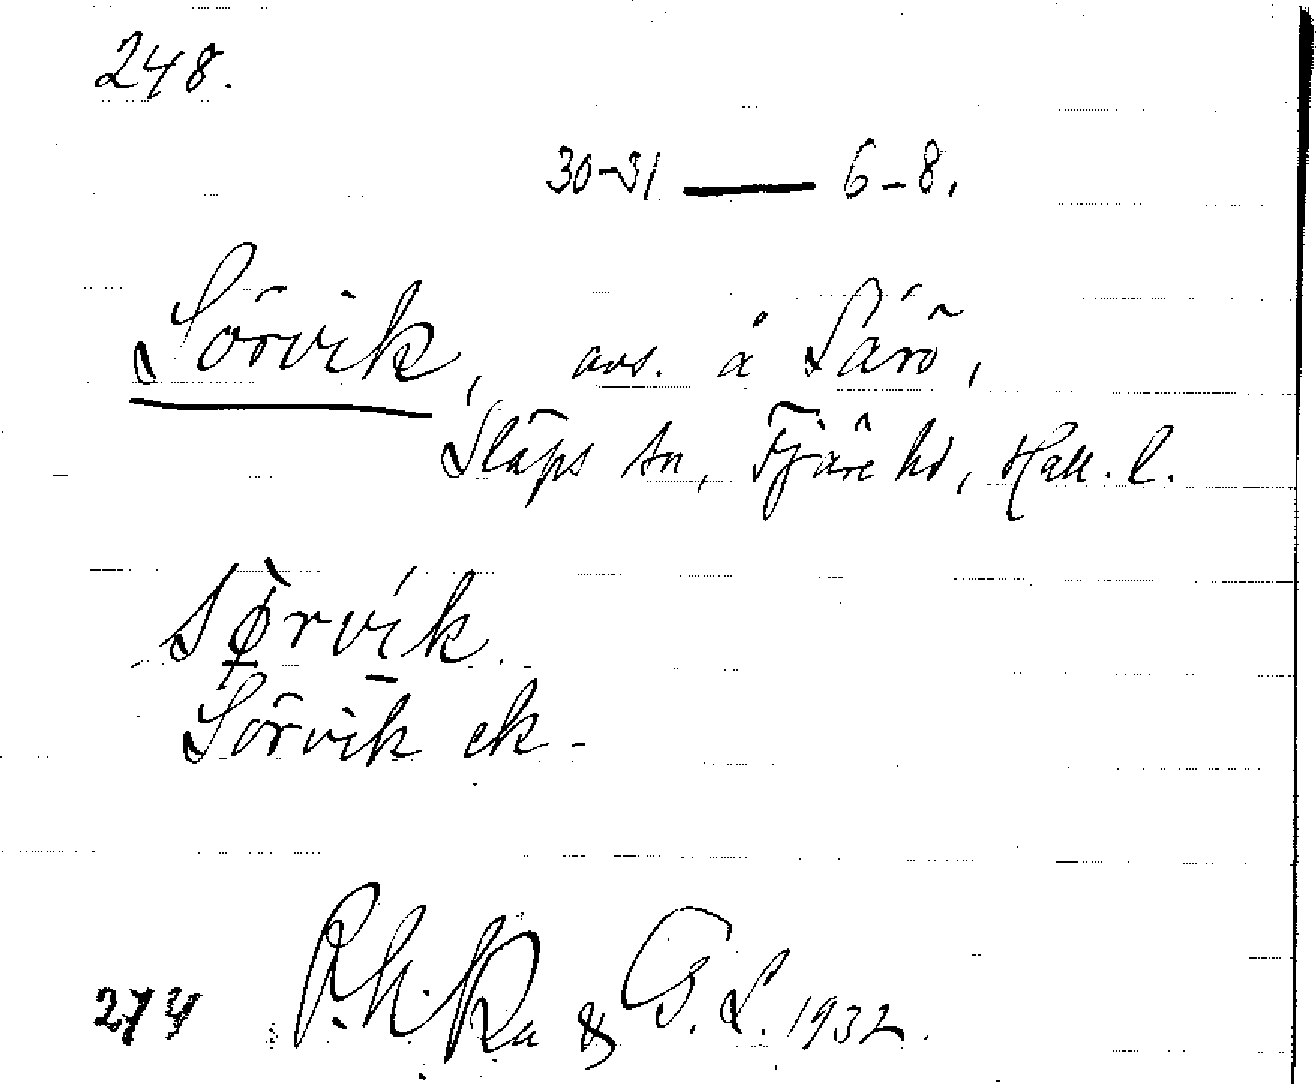 248.
30-31 — 6-8.
Sörvik, avs. å Särö,
Släps sn, Fjäre hd, Hall. l.
sørvik.
Sörvik ek-
274
& G. L. 1932.